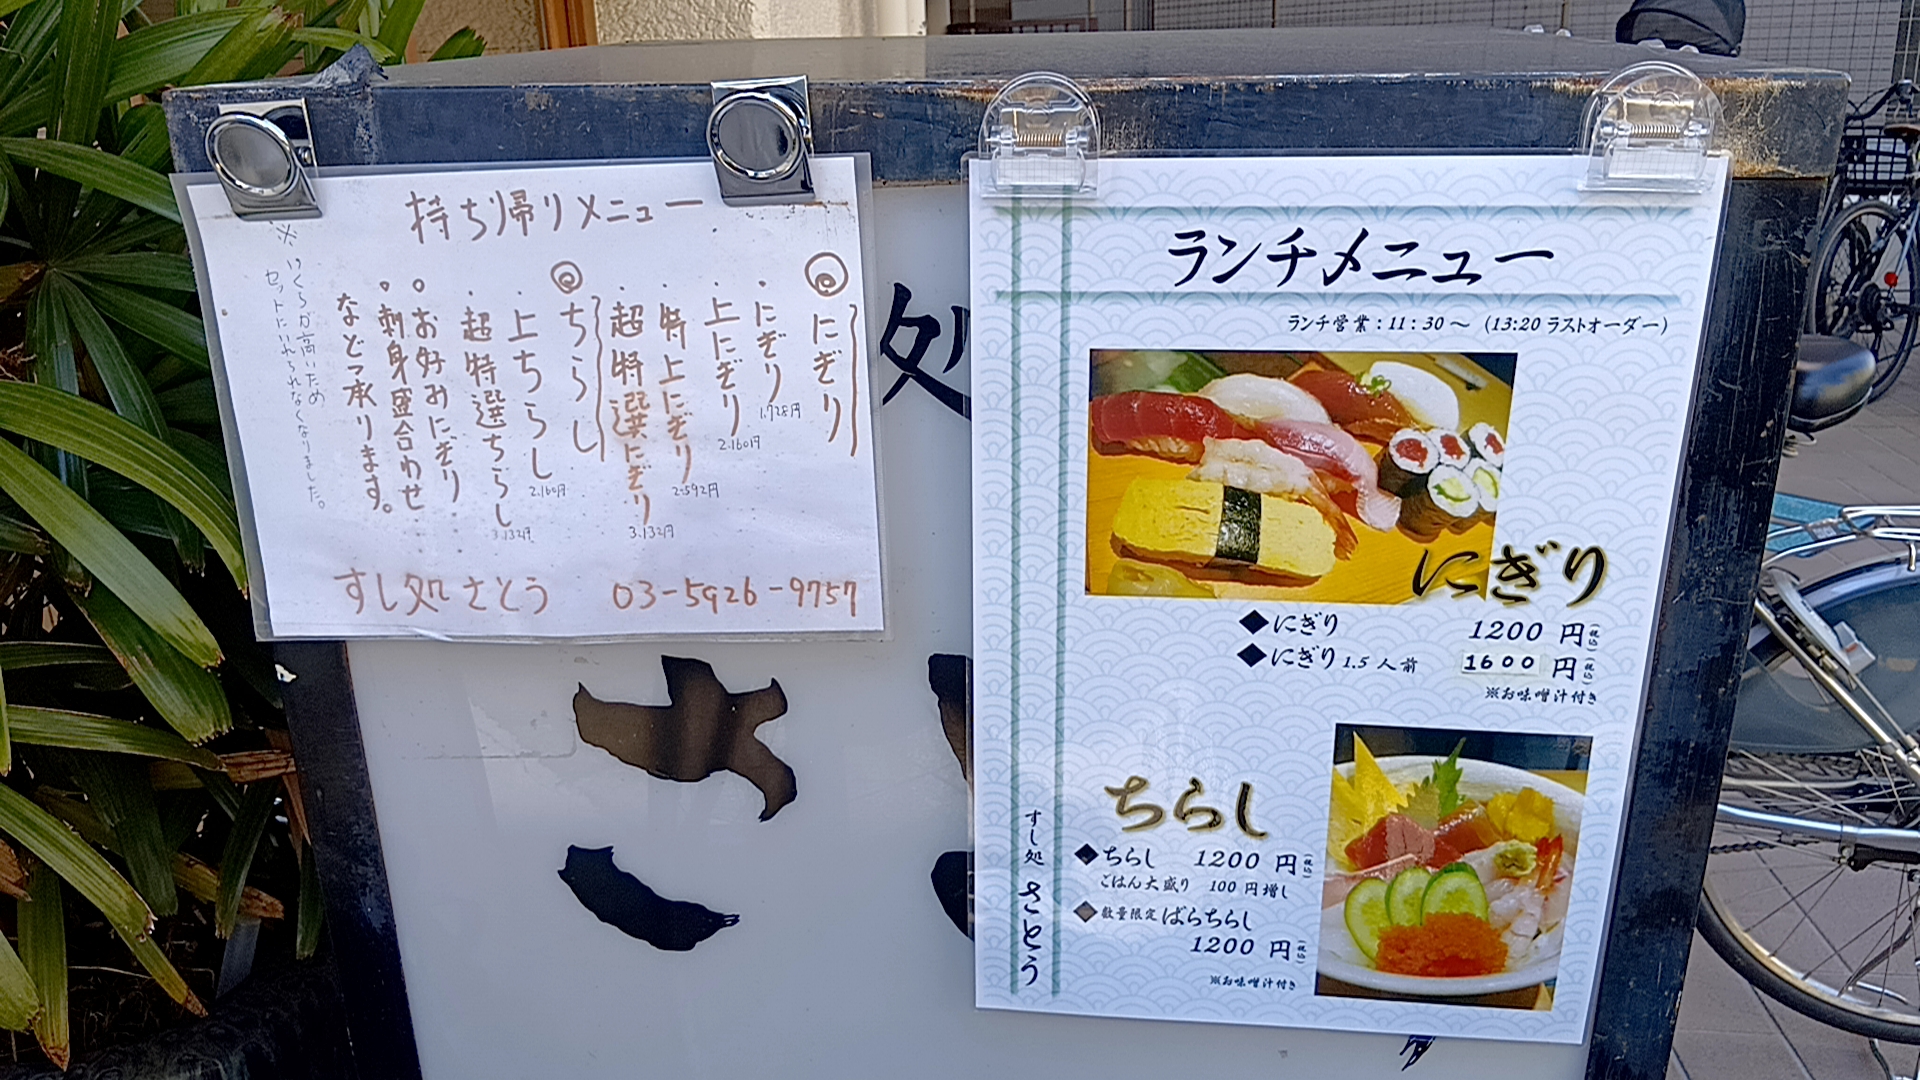 持ち帰りメニュー
◎にぎり
・にぎり 1.728円
・上にぎり 2.160円
・特上にぎり 2.592円
・超特選にぎり 3.132円
◎ちらし
・上ちらし 2.160円
・超特選ちらし 3.132円
○お好みにぎり
○刺身盛合わせ...
など承ります。
※いくらが高いため
セットにいれられなくなりました。
すし処 さとう 03-5926-9757
処
さ
ランチメニュー
ランチ営業：11：30～（13:20 ラストオーダー）
にぎり
◆にぎり 1200 円(税込)
◆にぎり 1.5 人前 1600 円(税込)
※お味噌汁付き
ちらし
◆ちらし 1200 円(税込)
ごはん大盛り 100 円増し
◆数量限定 ばらちらし
1200 円(税込)
※お味噌汁付き
すし処 さとう